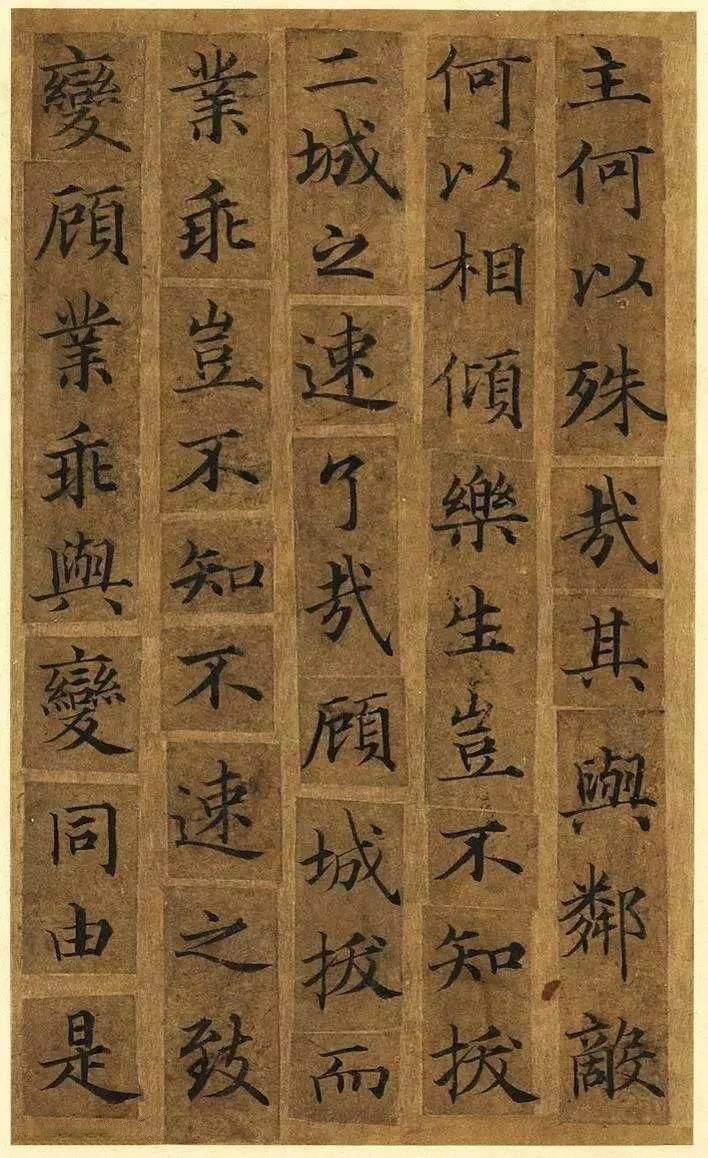 主何以殊哉其與鄰敵
何以相傾樂生豈不知拔
二城之速了哉顧城拔而
業乖豈不知不速之致
變顧業乖與變同由是